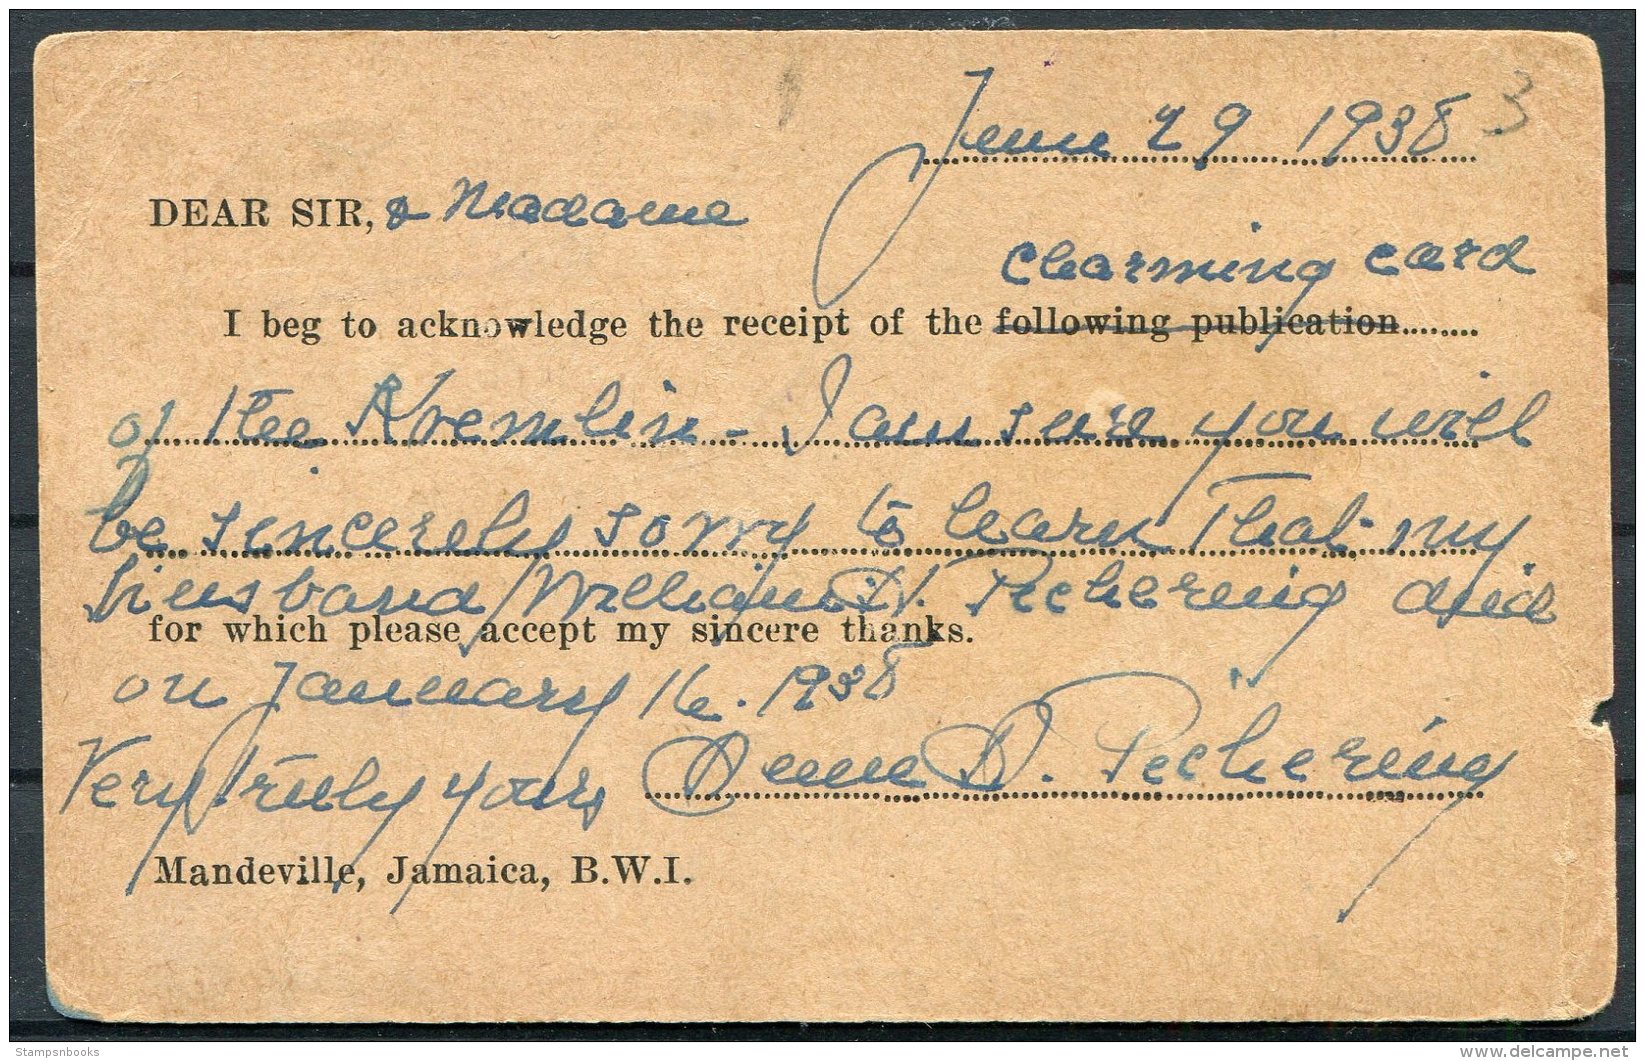 June 29 1938 3
DEAR SIR, & Madame
charming card
I beg to acknowledge the receipt of the following publication........
of the Kremlin - I am sure you will
be sincerely sorry to learn that my
husband William H. Pickering died
for which please accept my sincere thanks.
on January 16. 1938
Very truly yours Anne D. Pickering
Mandeville, Jamaica, B.W.I.
Stampsnbooks
delcampe.net